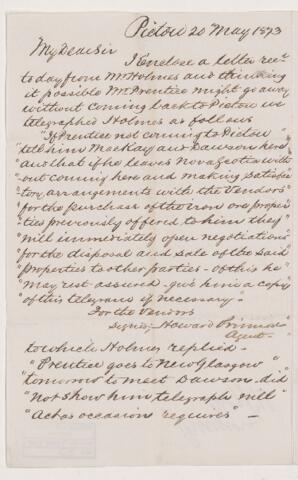 Pictou 20 May 1873
My Dear Sir
I Enclose a letter recd
to day from Mr Holmes and thinking
it possible Mr Prentice might go away
without coming back to Pictou we
telegraphed Holmes as follows
"If Prentice not coming to Pictou
"tell him MacKay and Dawson here
"and that if he leaves Nova Scotia with
"out coming here and making satisfac
"tory arrangements with the Vendors
"for the purchase of the iron ore proper
"ties previously offered to him they
"will immediately open negotiations
"for the disposal and sale of the said
"properties to other parties - of this he
"may rest assured - give him a copy
"of this telegram if necessary"
For the Vendors
signed, Howard Primrose
Agent
to which Holmes replied -
"Prentice goes to New Glasgow
"tomorrow to meet Dawson did
"not show him telegraph will
"act as occasion requires" -